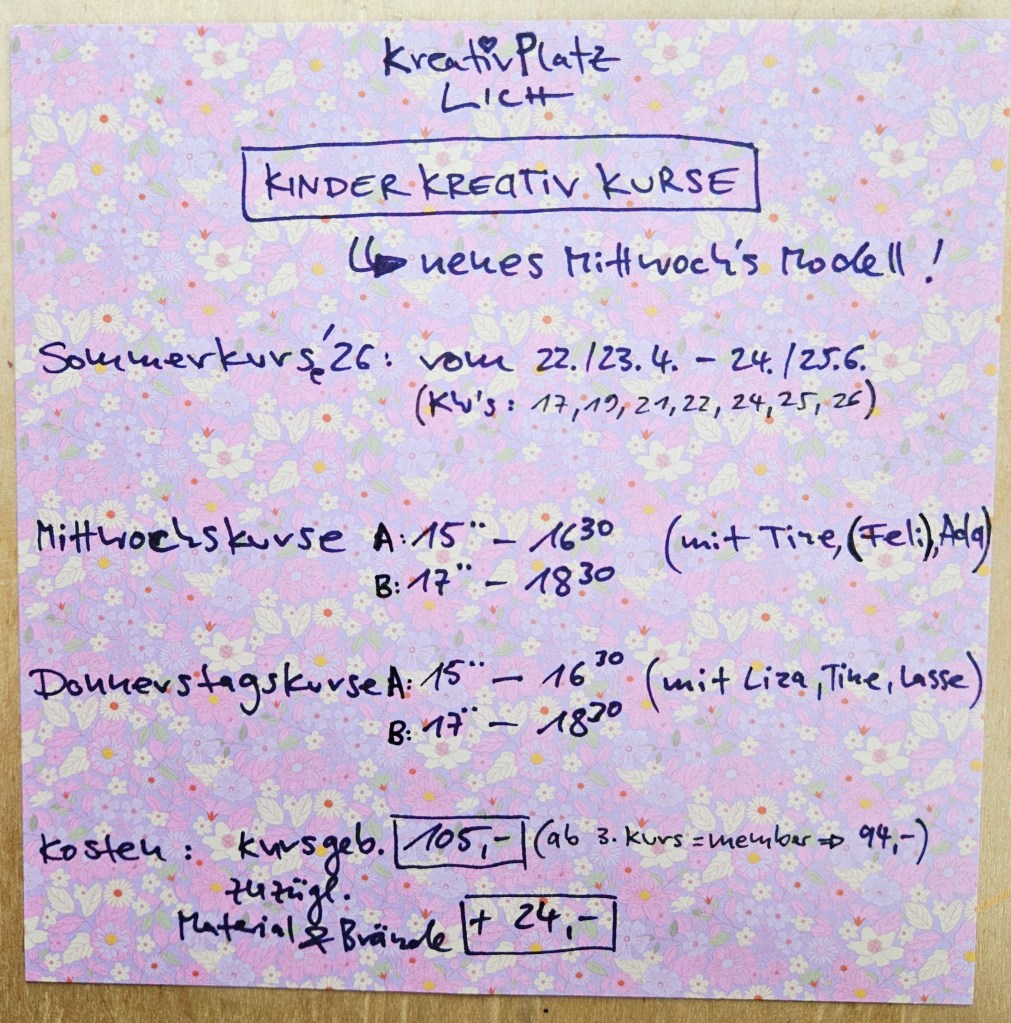 KreativPlatz
LICH
KINDER KREATIV KURSE
neues Mittwoch's Modell!
Sommerkurse '26: vom 22./23.4. - 24./25.6.
(KW's: 17, 19, 21, 22, 24, 25, 26)
Mittwochskurse A: 15¨ - 16³⁰ (mit Tine, (Feli), Ada)
B: 17¨ - 18³⁰
Donnerstagskurse A: 15¨ - 16³⁰ (mit Liza, Tine, Lasse)
B: 17¨ - 18³⁰
Kosten: Kursgeb. 105,- (ab 3. Kurs = member ⇒ 94,-)
zuzügl.
Material & Brände + 24,-